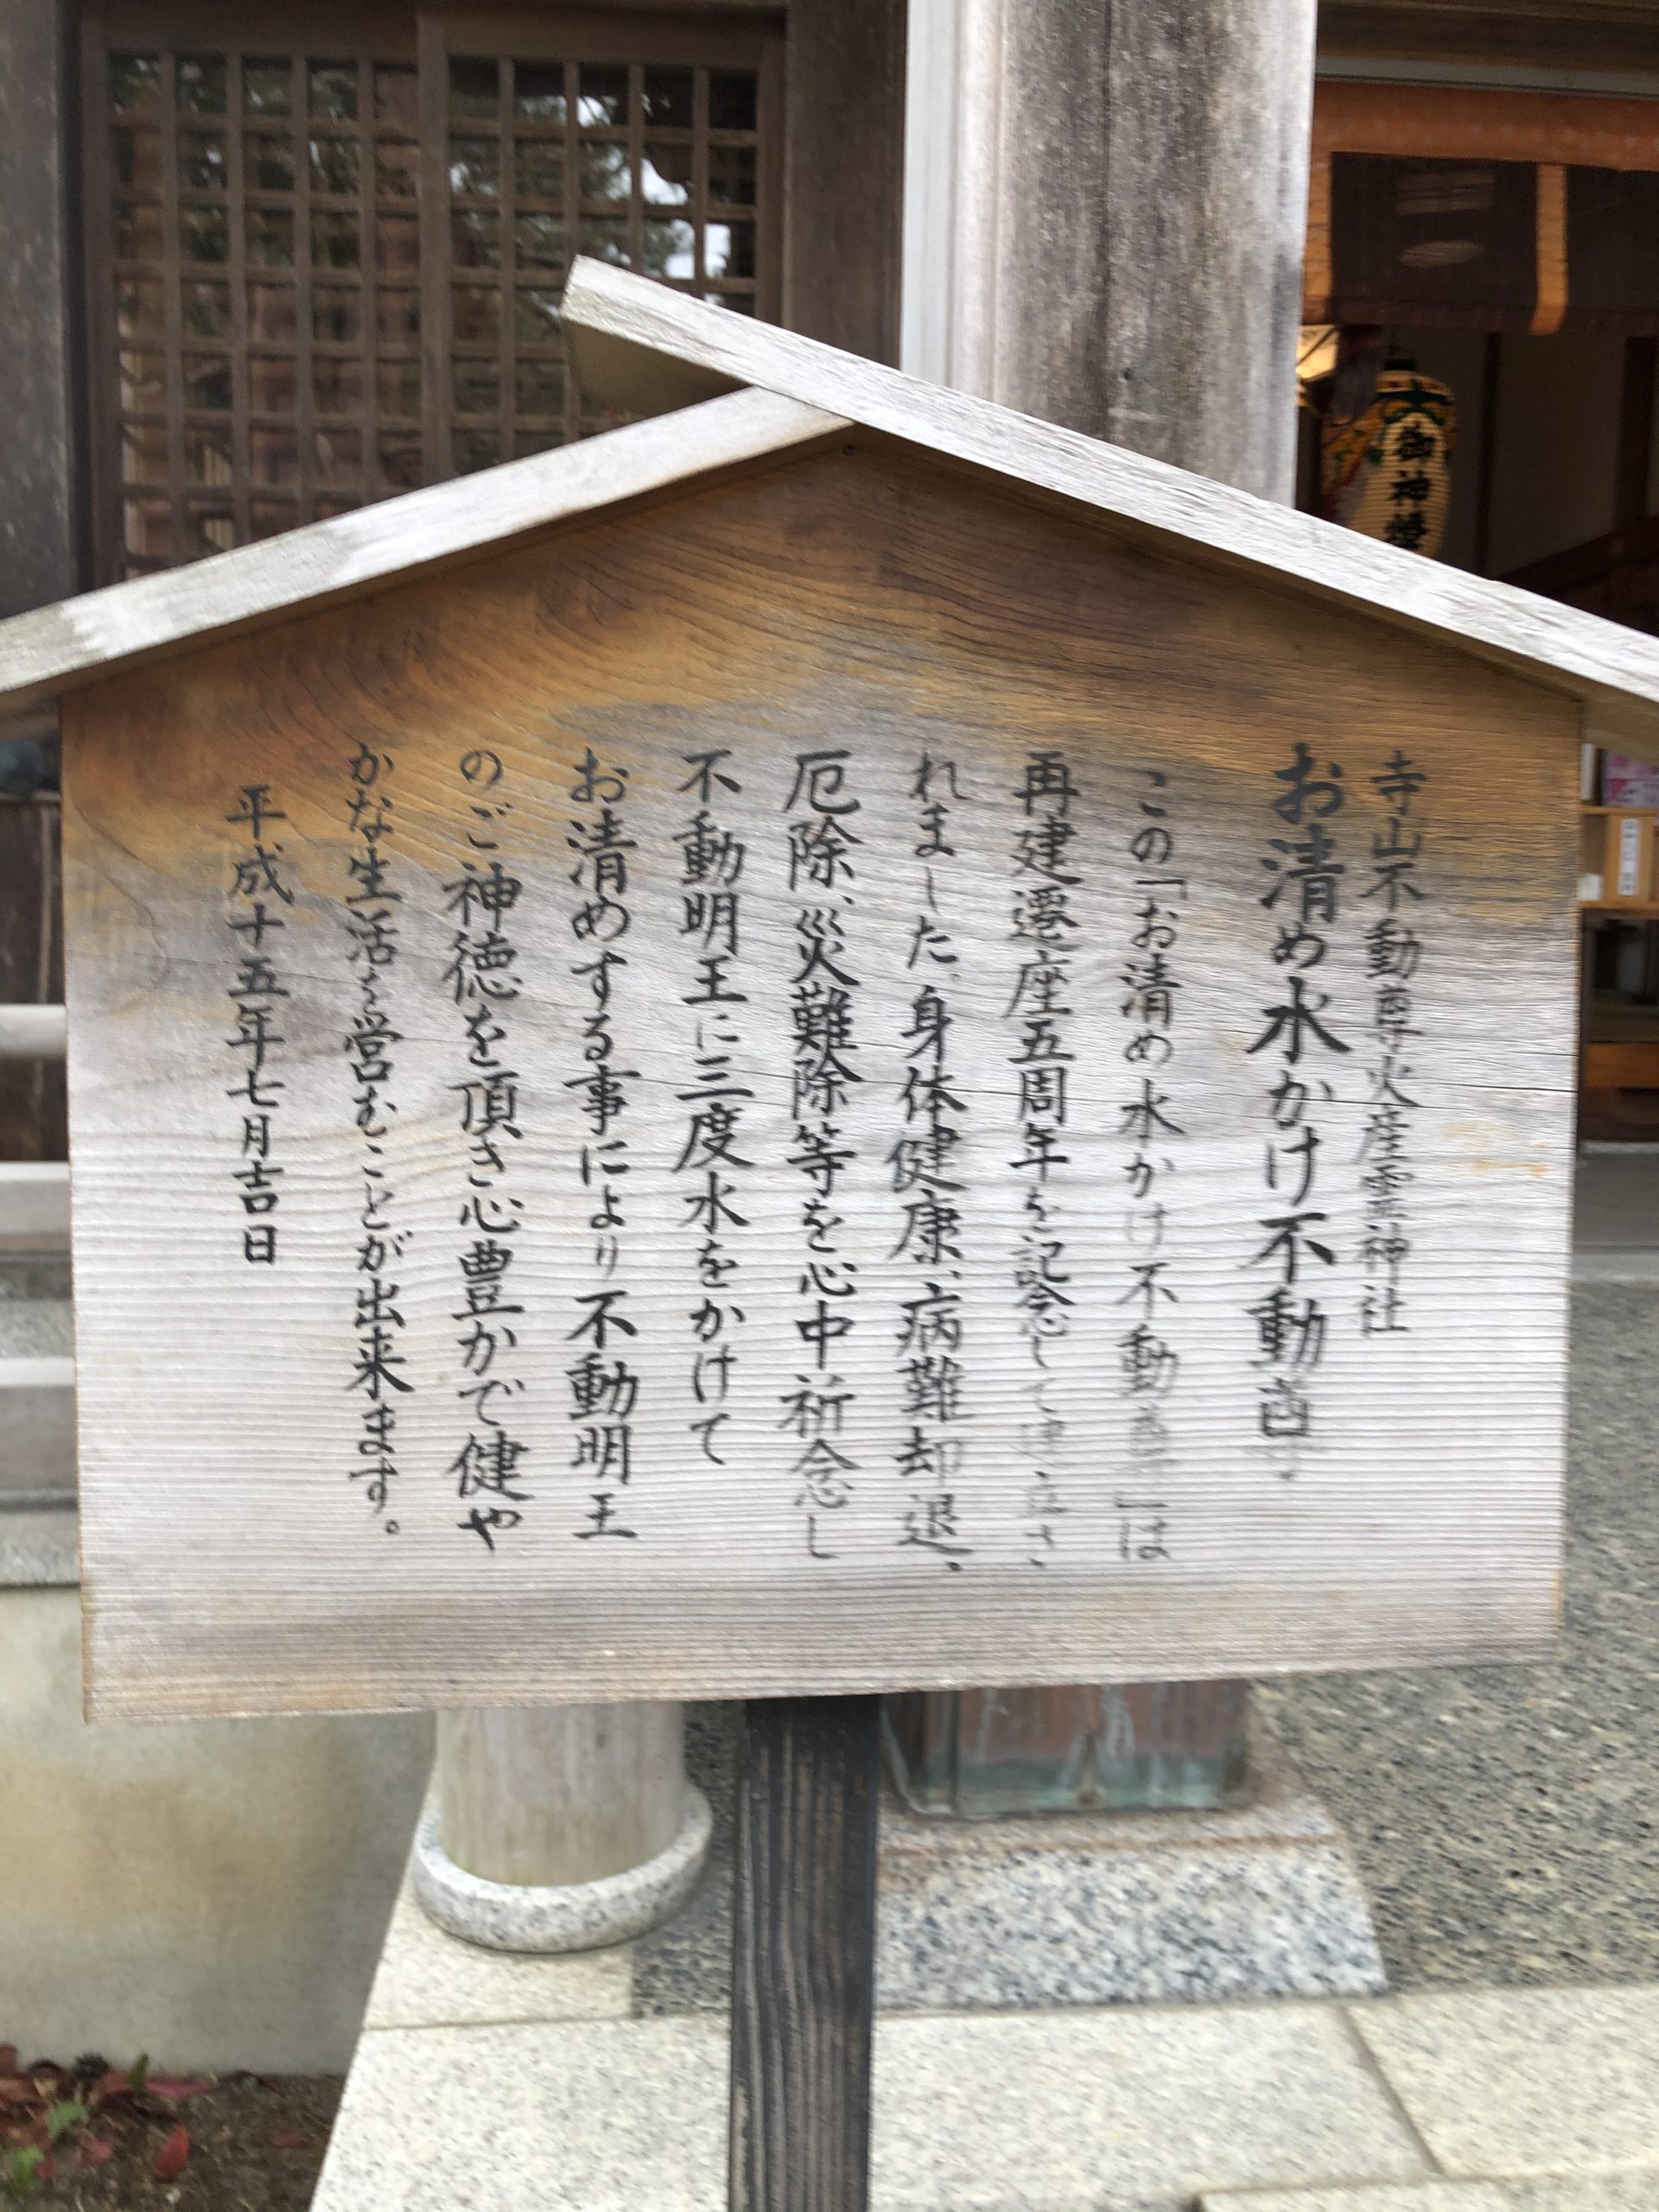 寺山不動尊火産霊神社
お清め水かけ不動尊
この「お清め水かけ不動尊」は
再建遷座五周年を記念して建立さ
れました。身体健康、病難却退、
厄除、災難除等を心中祈念し
不動明王に三度水をかけて
お清めする事により不動明王
のご神徳を頂き心豊かで健や
かな生活を営むことが出来ます。
平成十五年七月吉日
御神燈